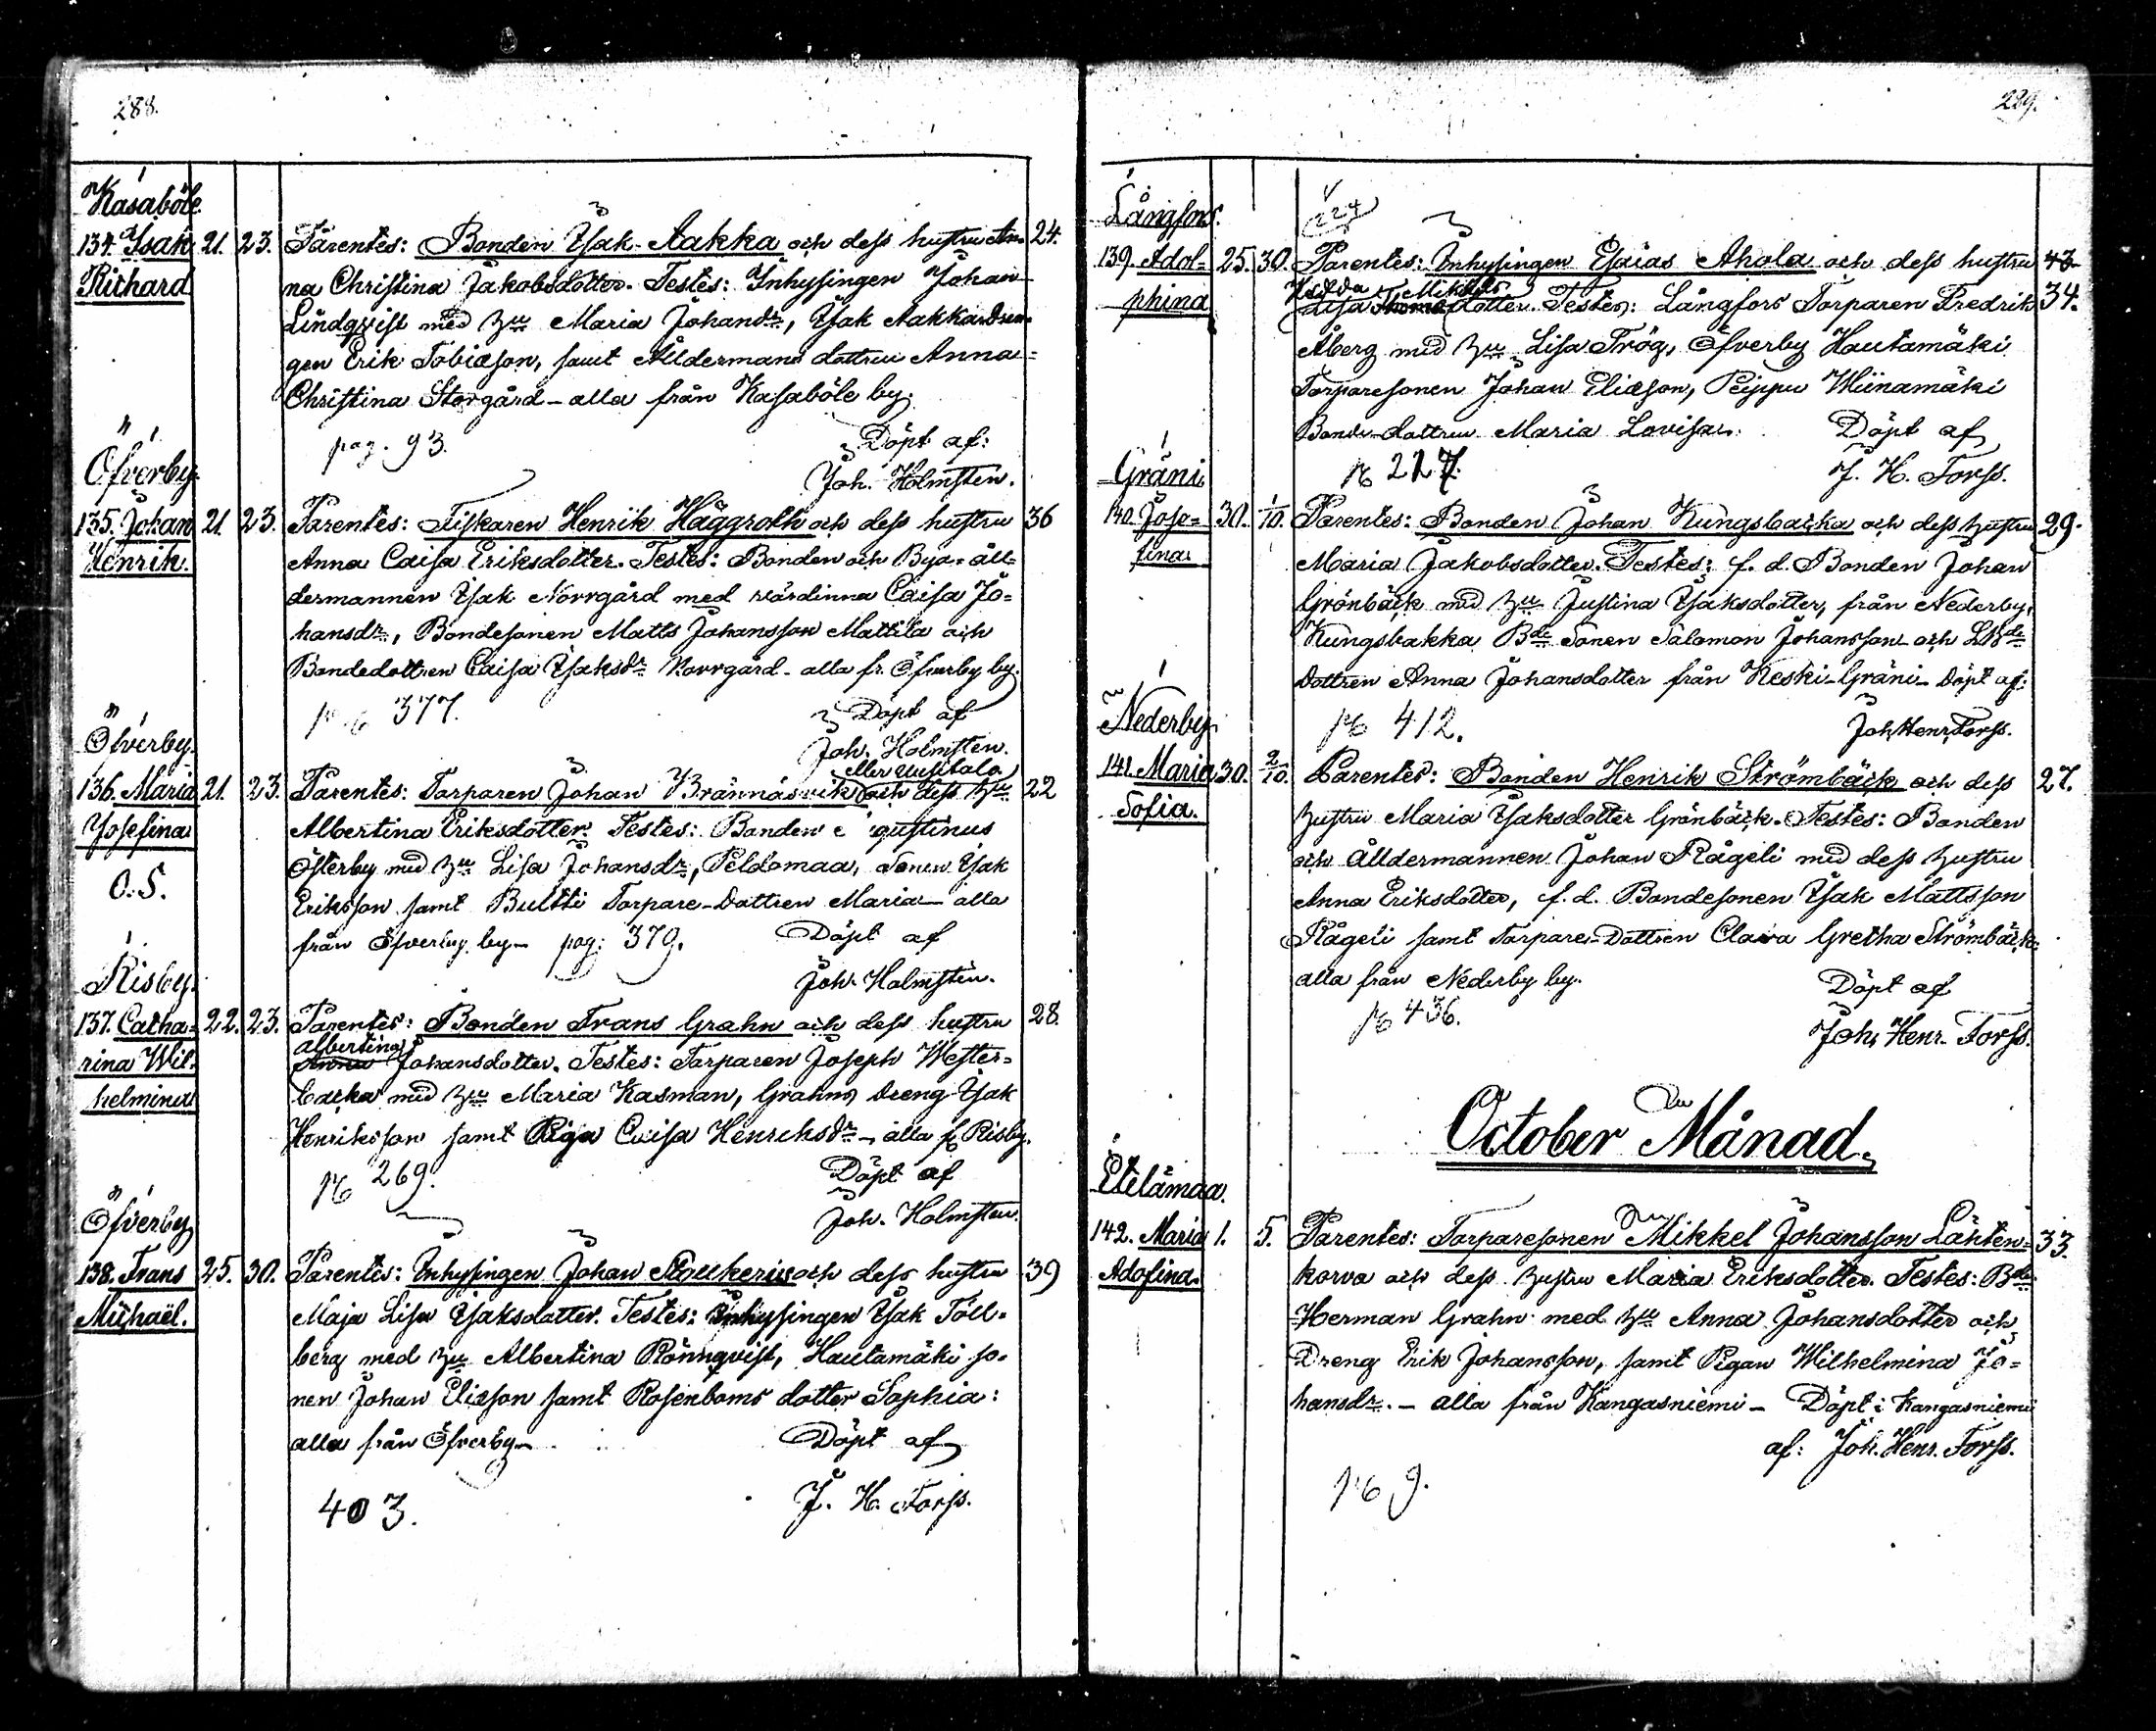 288.
Kasaböle
134. Isak 21. 23. Parentes: Bonden Isak Aakka och dess hustru An- 24.
Richard
na Christina Jakobsdotter. Testes: Inhysingen Johan
Lindqvist med hu Maria Johansdr, Isak Aakka Dren-
gen Erik Tobiæson, samt Ålldermans dottren Anna
Christina Storgård - alla från Kasaböle by.
pag. 93. Döpt af:
Joh. Holmsten.
Öfverby
135. Johan 21. 23. Parentes: Fiskaren Henrik Häggroth och dess hustru 36
Henrik.
Anna Caisa Eriksdotter. Testes: Bonden och Bya-åll-
dermannen Isak Norrgård med värdinna Caisa Jo-
hansdr, Bondesonen Matts Johansson Mattila och
Bondedottren Caisa Isaksdr Norrgård - alla fr. Öfverby by.
pag 377. Döpt af
Joh. Holmsten.
Öfverby
eller Uusitalo
136. Maria 21. 23. Parentes: Torparen Johan Brännäsvik och dess hu 22
Josefina
O.S.
Albertina Eriksdotter. Testes: Bonden gustinus
Österby med hu Lisa Johansdr, Peldomaa, Sonen Isak
Eriksson samt Bultti Torpare-Dottren Maria - alla
från Öfverby by - pag: 379. Döpt af
Joh. Holmsten.
Risby
137. Catha- 22. 23. Parentes: Bonden Frans Grahn och dess hustru 28.
rina Wil-
helmina
albertina
Anna Johansdotter. Testes: Torparen Joseph Wester-
backa med hu Maria Kasman, Grahns Dreng Isak
Henriksson samt Piga Caisa Henriksdr - alla f. Risby.
pag 269. Döpt af
Joh. Holmsten.
Öfverby
138. Frans 25. 30. Parentes: Inhysingen Johan och dess hustru 39
Michaël.
Maja Lisa Isaksdotter. Testes: Inhysingen Isak Töll-
berg med hu Albertina Rönnqvist, Hautamäki so-
nen Johan Eliæson samt Rosenboms dotter Sophia:
alla från Öfverby - Döpt af
403. J. H. Forss.
289.
Långfors.
224
139. Adol- 25. 30. Parentes: Inhysingen Esaias Ahola och dess hustru 43
phina 34.
Mikels
Lisa Thomæ dotter. Testes: Långfors Torparen Fredrik
Åberg med hu Lisa Trög, Öfverby Hautamäki
Torparesonen Johan Eliæson, Peippu Wiinamäki
Bonde-dottren Maria Lovisa. Döpt af
pag 227. J. H. Forss.
Gräni
140. Jose- 30. 1/10. Parentes: Bonden Johan Kungsbacka och dess hustru 29.
fina.
Maria Jakobsdotter. Testes: f. d. Bonden Johan
Grönbäck med hu Justina Isaksdotter, från Nederby,
Kungsbakka Bde Sonen Salomon Johansson och LBde
Dottren Anna Johansdotter från Keski-Gräni - Döpt af:
pag 412. Joh. Henr. Forss.
Nederby
141. Maria 30. 2/10. Parentes: Bonden Henrik Strömbäck och dess 27.
Sofia.
hustru Maria Isaksdotter Grönbäck. Testes: Bonden
och Ålldermannen Johan Rågeli med dess hustru
Anna Eriksdotter, f. d. Bondesonen Isak Mattsson
Rågeli samt Torpare-Dottren Clara Gretha Strömbäck:
alla från Nederby by. Döpt af
pag 436. Joh. Henr. Forss.
October Månad.
Etelämaa.
142. Maria 1. 5. Parentes: Torparesonen Mikkel Johansson Lähten- 33.
Adofina.
korva och dess hustru Maria Eriksdotter. Testes: Bde
Herman Grahn med hu Anna Johansdotter och
Dreng Erik Johansson, samt Pigan Wilhelmina Jo-
hansdr. - alla från Kangasniemi - Döpt i Kangasniemi
af: Joh. Henr. Forss.
pag 9.